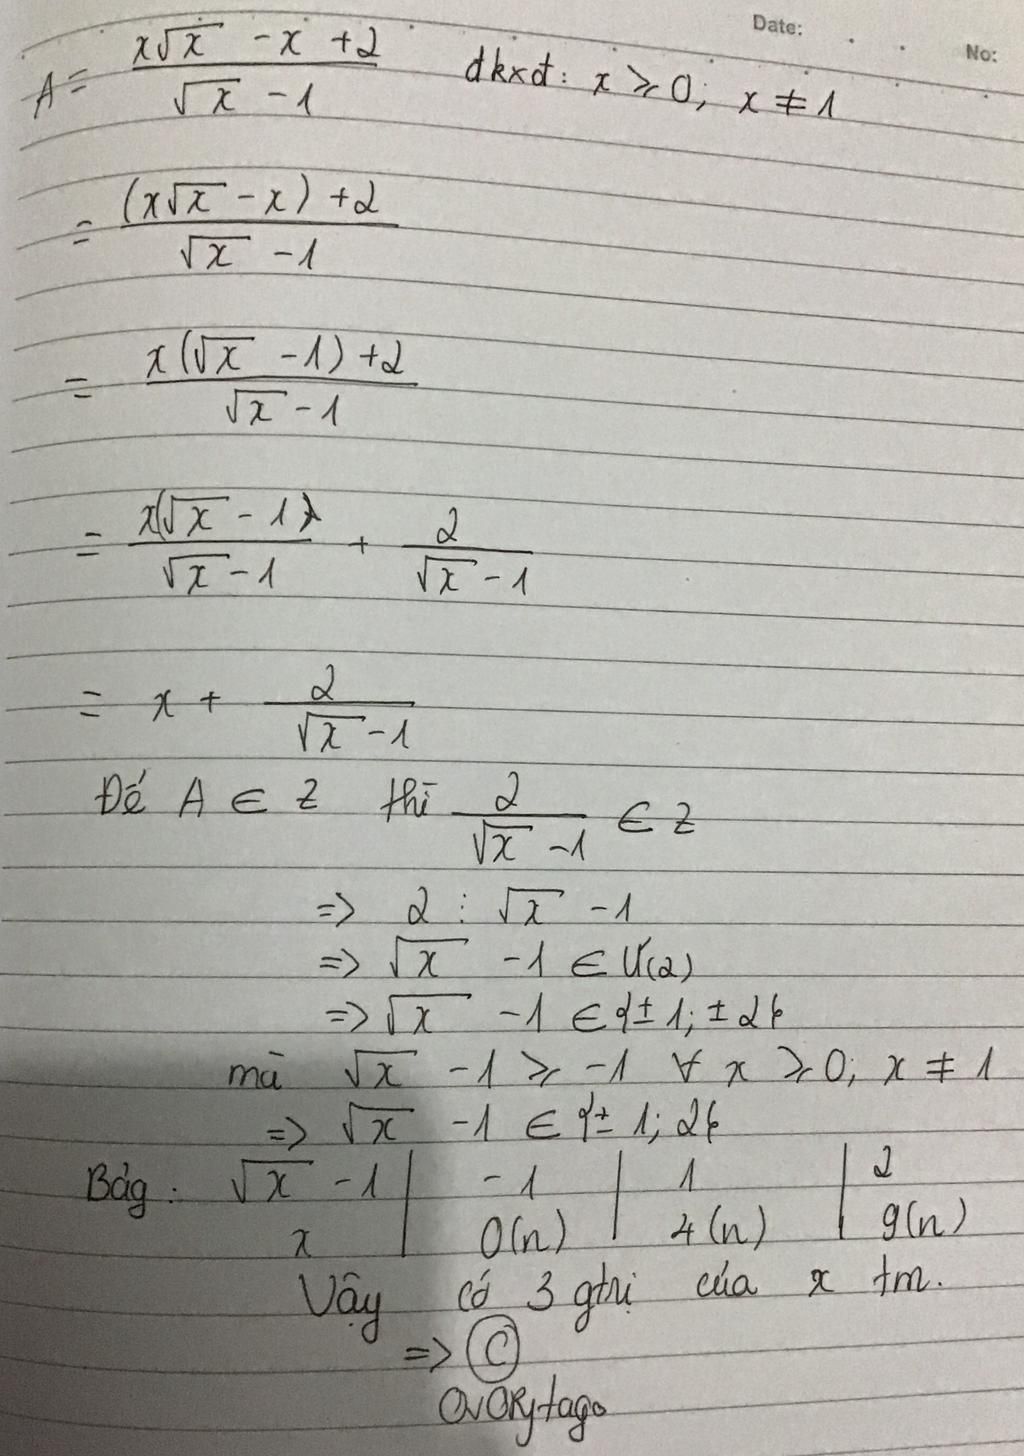 Date:
No:
A = \frac{x\sqrt{x} - x + 2}{\sqrt{x} - 1} đkxđ: x ⩾ 0; x ≠ 1
= \frac{(x\sqrt{x} - x) + 2}{\sqrt{x} - 1}
= \frac{x(\sqrt{x} - 1) + 2}{\sqrt{x} - 1}
= \frac{x(\sqrt{x} - 1)}{\sqrt{x} - 1} + \frac{2}{\sqrt{x} - 1}
= x + \frac{2}{\sqrt{x} - 1}
Để A ∈ Z thì \frac{2}{\sqrt{x} - 1} ∈ Z
=> 2 ⋮ \sqrt{x} - 1
=> \sqrt{x} - 1 ∈ Ư(2)
=> \sqrt{x} - 1 ∈ {± 1; ± 2}
mà \sqrt{x} - 1 ⩾ -1 ∀ x ⩾ 0; x ≠ 1
=> \sqrt{x} - 1 ∈ {± 1; 2}
Bảg: \sqrt{x} - 1 | -1 | 1 | 2
x | 0(n) | 4(n) | 9(n)
Vậy có 3 gtrị của x tm.
=> C